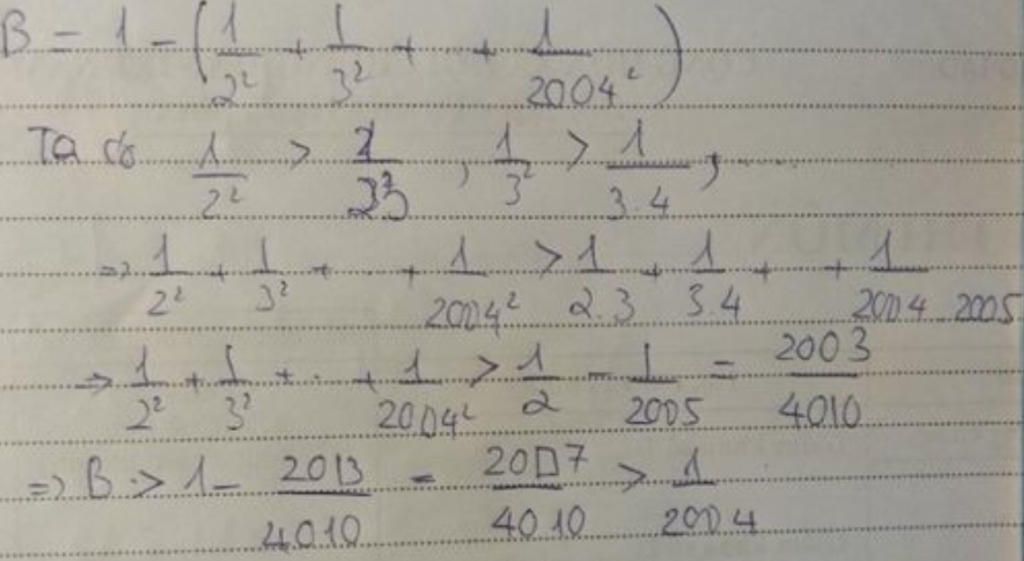 B = 1 - (1/2² + 1/3² + .. + 1/2004²)
Ta có 1/2² > 1/2.3 , 1/3² > 1/3.4 ; .....
=> 1/2² + 1/3² + .. + 1/2004² > 1/2.3 + 1/3.4 + .. + 1/2004.2005
=> 1/2² + 1/3² + .. + 1/2004² > 1/2 - 1/2005 = 2003/4010
=> B > 1 - 2003/4010 = 2007/4010 > 1/2004